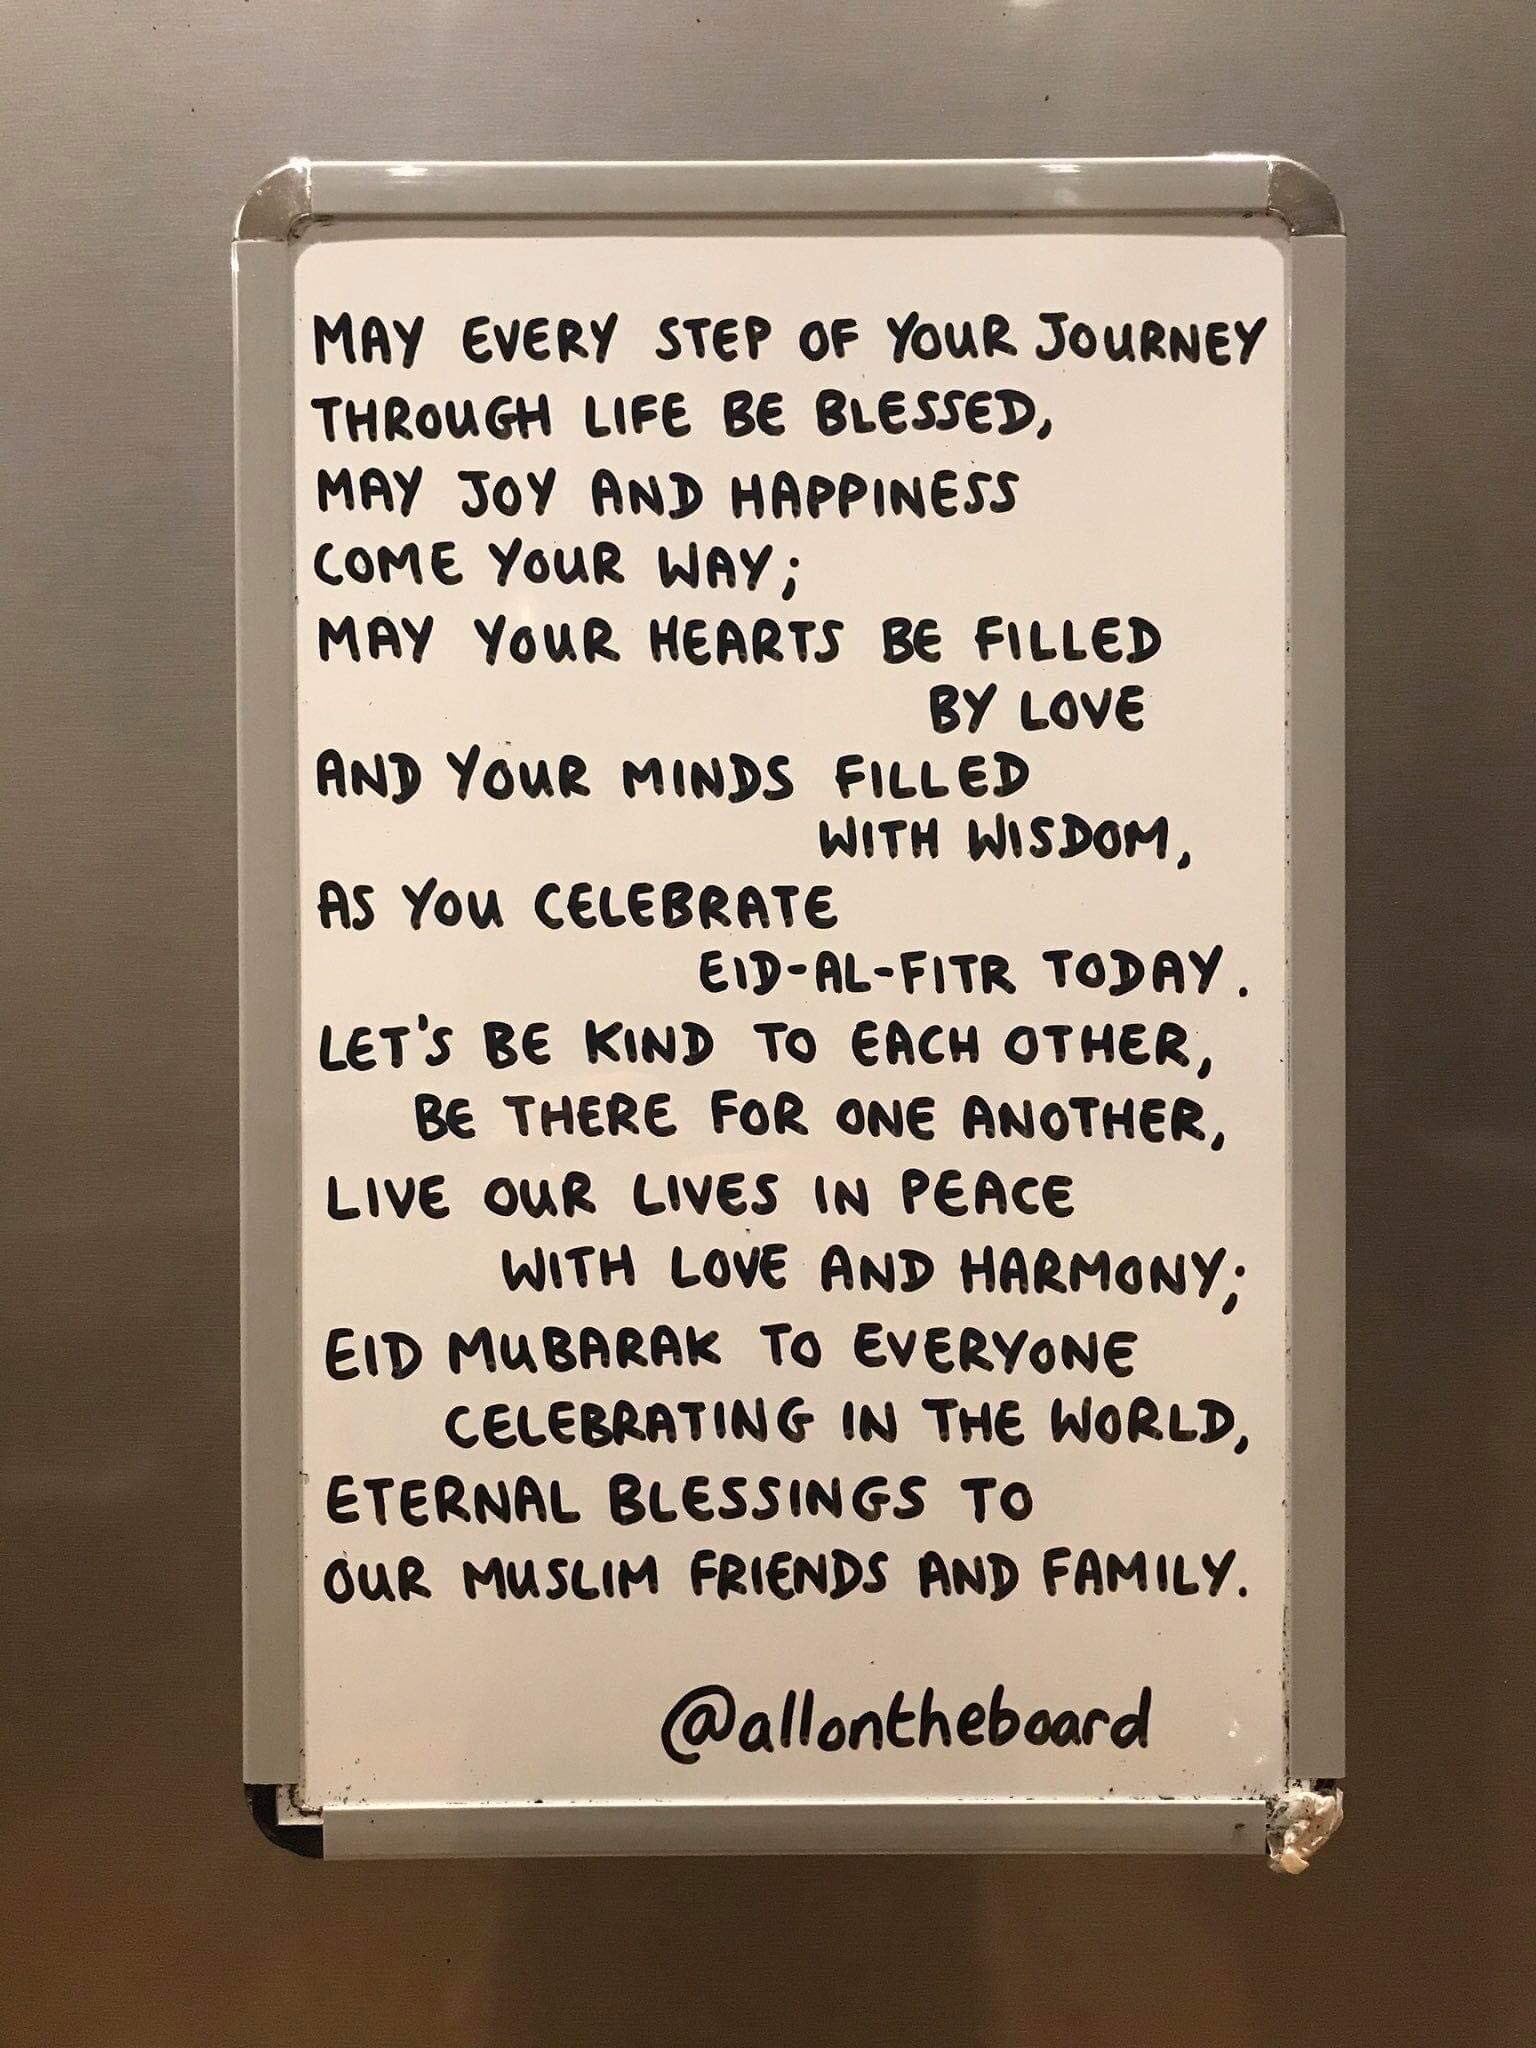 MAY EVERY STEP OF YOUR JOURNEY
THROUGH LIFE BE BLESSED,
MAY JOY AND HAPPINESS
COME YOUR WAY;
MAY YOUR HEARTS BE FILLED
BY LOVE
AND YOUR MINDS FILLED
WITH WISDOM,
AS YOU CELEBRATE
EID-AL-FITR TODAY.
LET'S BE KIND TO EACH OTHER,
BE THERE FOR ONE ANOTHER,
LIVE OUR LIVES IN PEACE
WITH LOVE AND HARMONY;
EID MUBARAK TO EVERYONE
CELEBRATING IN THE WORLD,
ETERNAL BLESSINGS TO
OUR MUSLIM FRIENDS AND FAMILY.
@allontheboard